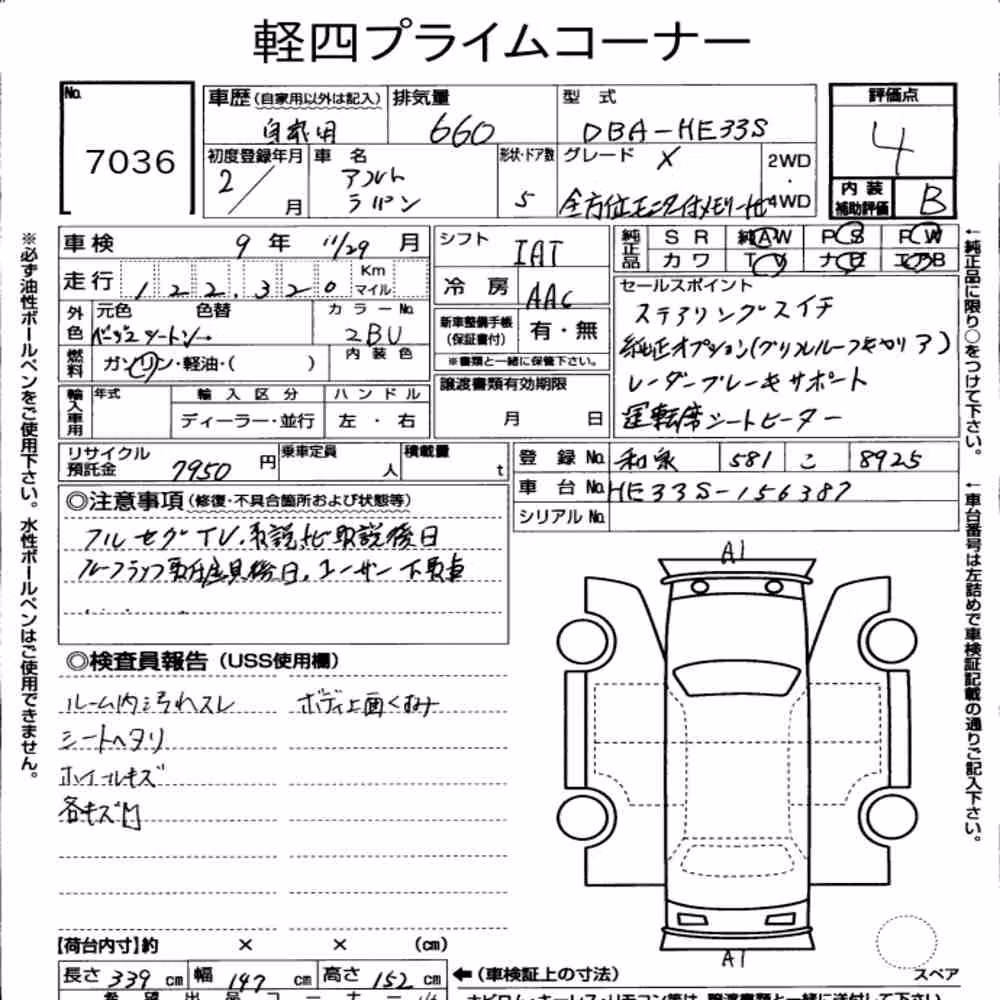 軽四プライムコーナー
No.
7036
車歴(自家用以外は記入)
自家用
排気量
660
型 式
DBA-HE33S
評価点
4
初度登録年月
2/ 月
車 名
アルト
ラパン
形状・ドア数
5
グレード X
全方位モニタ付メモリーナビ
2WD
・
4WD
内 装
補助評価
B
車 検 9 年 11/29 月
走行 122,320 Km マイル
外色
元色 色替
ベージュツートン
カラーNo.
2BU
燃料
ガソリン・軽油・( )
内 装 色
輸入車用
年式
輸 入 区 分
ディーラー・並行
ハ ン ド ル
左 ・ 右
シフト IAT
冷 房 AAC
新車整備手帳
(保証書付)
有・無
※書類と一緒に保管下さい。
譲渡書類有効期限
月 日
純正品
S R 純AW P S P W
カ ワ T V ナ ビ エアB
セールスポイント
ステアリングスイチ
純正オプション(グリルルーフキャリア)
レーダーブレーキサポート
運転席シートヒーター
リサイクル
預託金
7950 円
乗車定員
人
積載量
t
登 録 No. 和泉 581 こ 8925
車 台 No. HE33S-156387
シリアル No.
◎注意事項(修復・不具合箇所および状態等)
フルセグTV、取説ナビ取説後日
◎検査員報告(USS使用欄)
ルーム内汚れスレ
ボディ上面くもみ
シートヘタリ
ホイールキズ
各キズ凹
A1
A1
スペア
【荷台内寸】約 × × (cm)
長さ 339 cm 幅 147 cm 高さ 152 cm
←(車検証上の寸法)
※必ず油性ボールペンをご使用下さい。水性ボールペンはご使用できません。
←純正品に限り○をつけて下さい。
←車台番号は左詰めで車検証記載の通りご記入下さい。